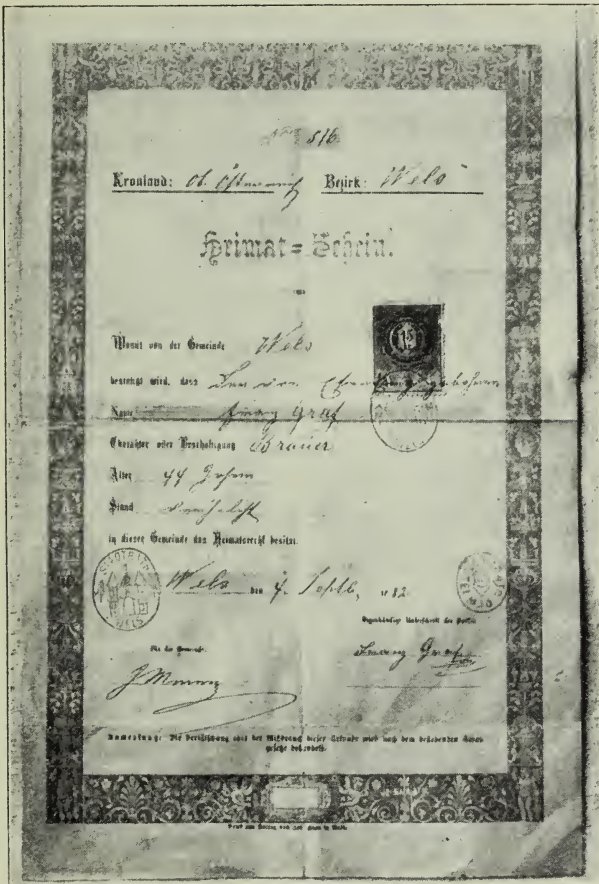 Nro 516
Kronland: Ob. Österreich Bezirk: Wels
Heimat-Schein.
Womit von der Gemeinde Wels
15
bestätigt wird, dass
Name Franz Graf
Charakter oder Beschäftigung Brauer
Alter 44 Jahre
Stand verehelicht
in dieser Gemeinde das Heimatsrecht besitzt.
Wels den 7. 82
WELS
Eigenhändige Unterschrift der Partei
Für die Gemeinde:
Franz Graf
Anmerkung: Die Verfälschung oder der Missbrauch dieser Urkunde wird nach dem bestehenden
gesetze behandelt.